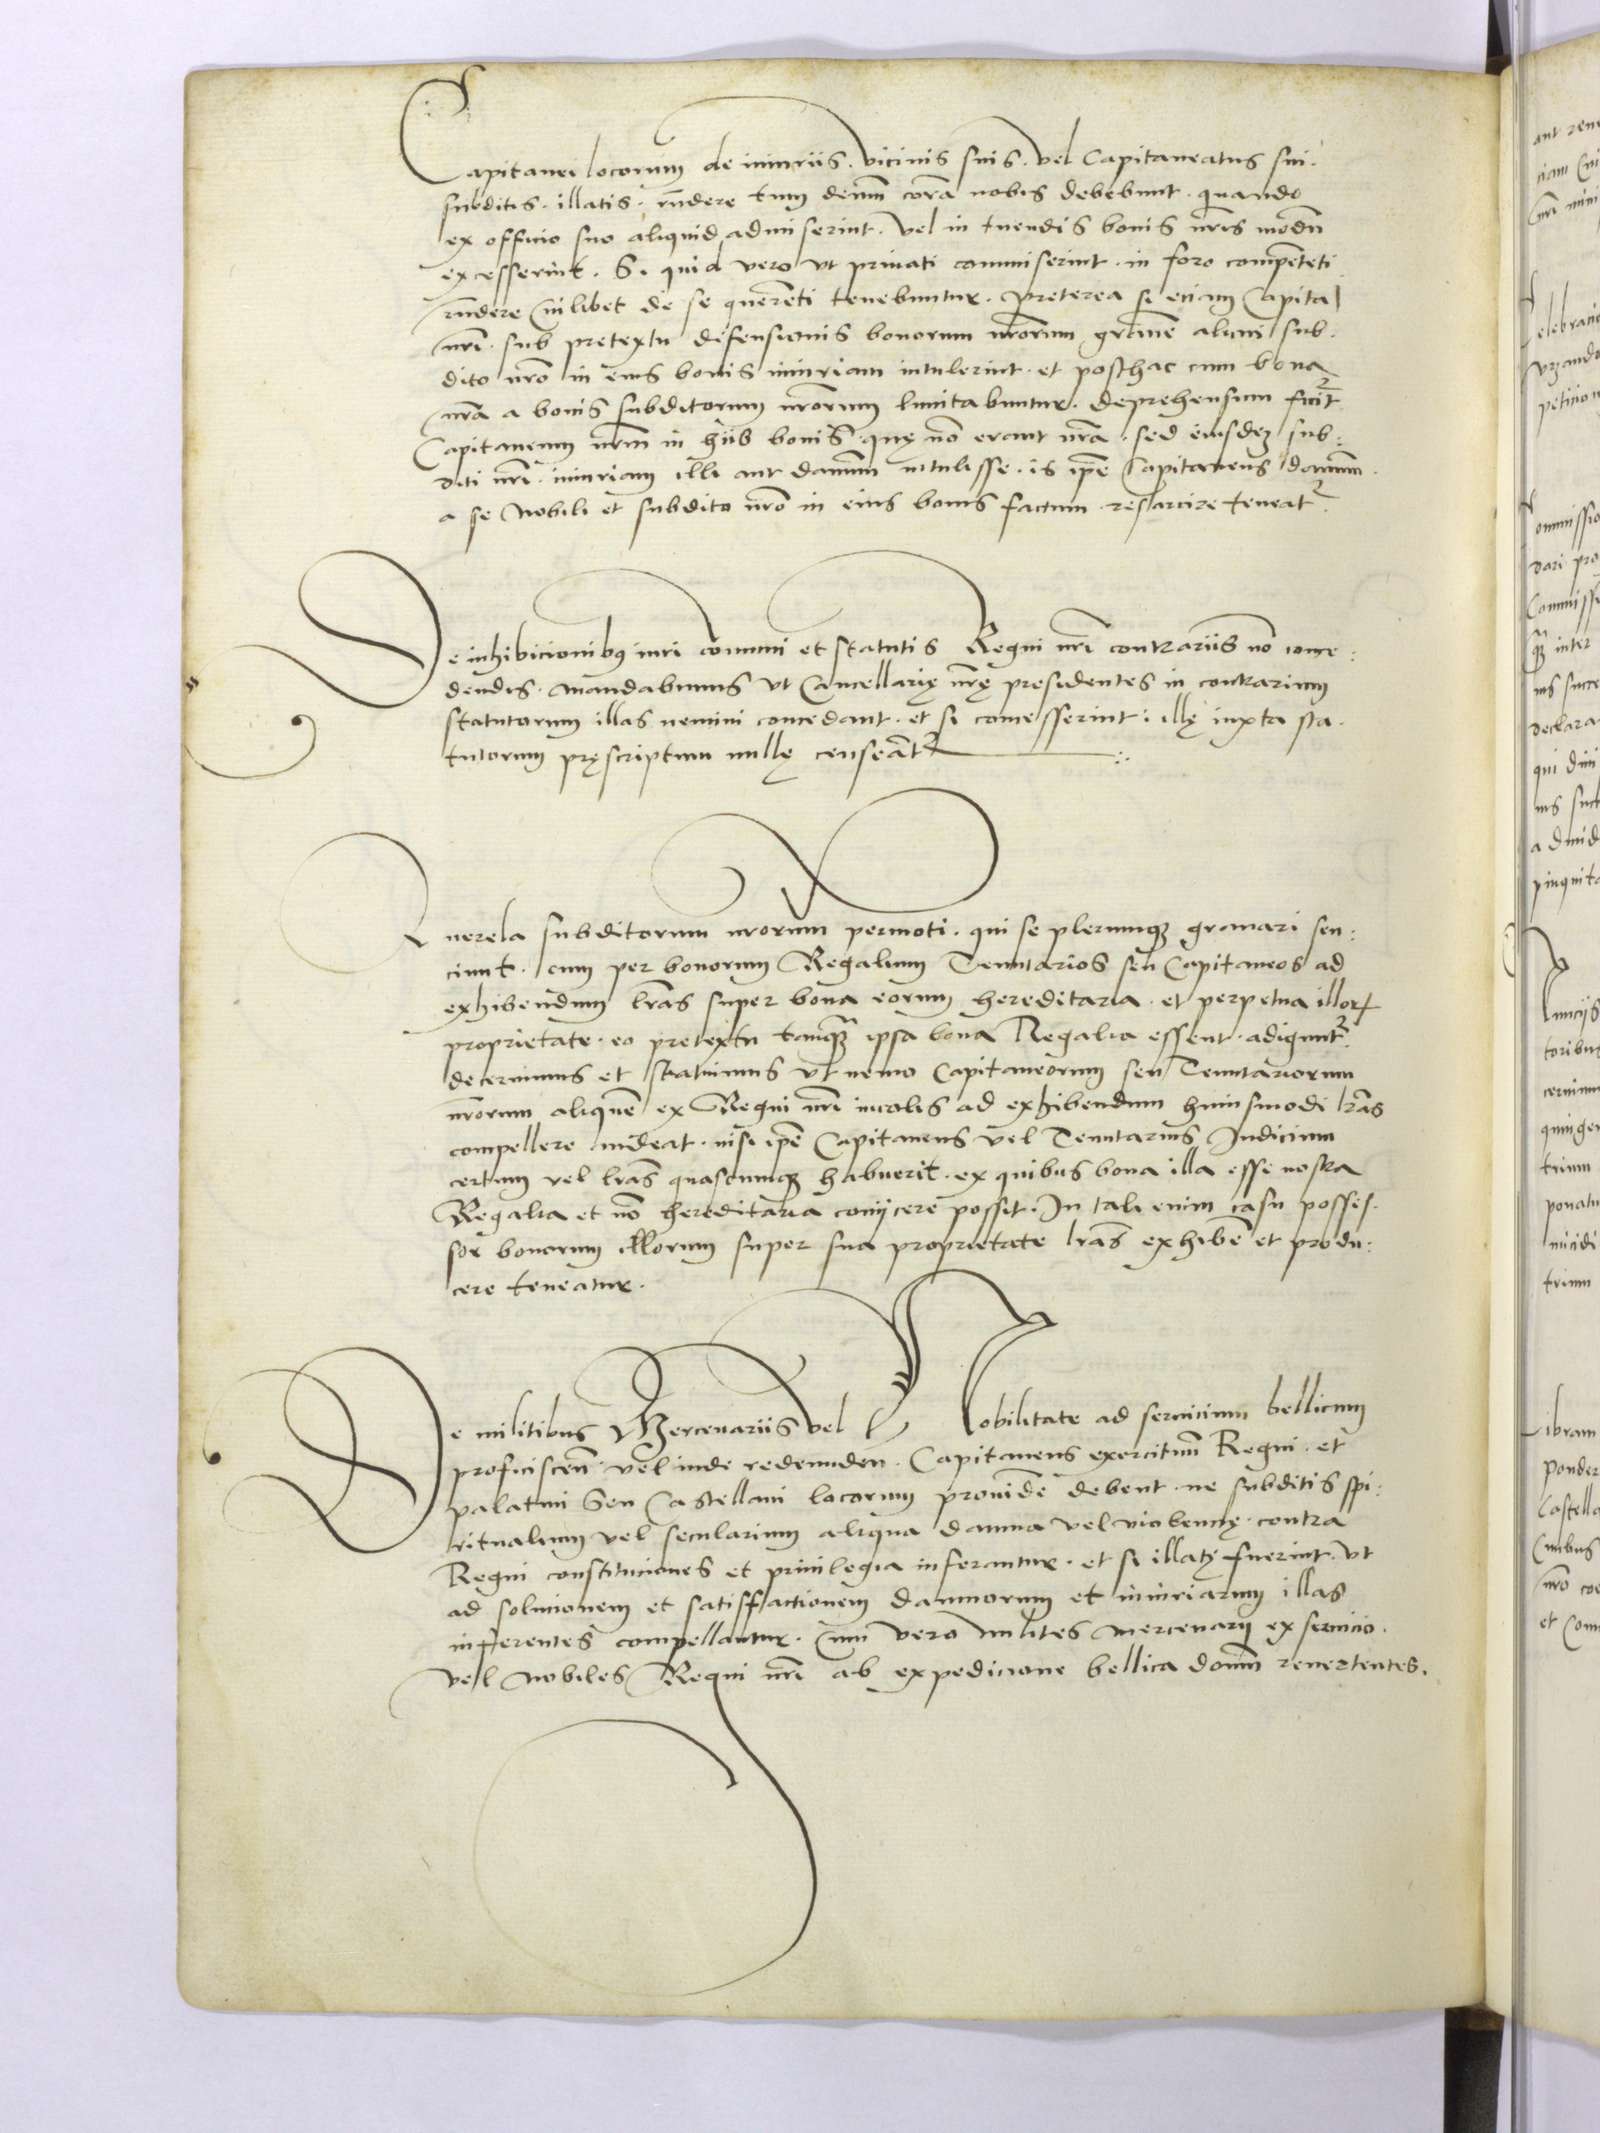 Capitanei locorum de iniuriis. vicinis suis. vel Capitaneatus sui.
subditis. illatis. rñdere tum demũ corã nobis debebunt. quando
ex officio suo aliquid admiserint. vel in tuendis bonis nr̃is modũ
excesserint. Si quid vero vt priuati commiserint. in foro compẽteti
rñdere cuilibet de se querẽti tenebuntur. Preterea si etiam Capita
nr̃i. sub pretextu defensionis bonorum nr̃orum grauẽ alicui sub.
dito nr̃o in eius bonis iniuriam intulerint. et posthac cum bona
nr̃a a bonis subditorum nr̃orum limitabuntur. deprehensum fuit̃
Capitaneum nr̃m in hiis bonis quę nõ erant nr̃a. sed eiusdeʒ sub:
diti nr̃i. iniuriam illi aut damnũ intulisse. is ip̃e Capitaneus damnũ
a se Nobili et subdito nr̃o in eius bonis factum resarcire teneat̃.
De inhibicionibꝫ iuri comuni et statutis Regni nr̃i contrariis nõ conce:
dendis. Mandabimus vt Cancellarię nr̃ę presidentes in contrarium
statutorum illas nemini concedant. et si concesserint: illę iuxta sta.
tutorum pręscriptum nullę censeãt̃
Querela subditorum nr̃orum permoti. qui se plerumqꝫ grauari sen:
ciunt. cum per bonorum Regalium Tenutarios seu Capitaneos ad
exhibendum lr̃as super bona eorum hereditaria. et perpetua illorꝝ
proprietate. eo pretextu tamqꝫ̃ ipsa bona Regalia essent. adigunt̃.
decernimus et statuimus vt nemo Capitaneorum seu Tenutariorum
nr̃orum aliquẽ ex Regni nr̃i incolis ad exhibendum huiusmodi lr̃as
compellere audeat. nisi ip̃e Capitaneus vel Tenutarius Indicium
certum vel lr̃as quascumqꝫ habuerit. ex quibus bona illa esse nostra
Regalia et nõ hereditaria coniicere posset. In tali enim casu posses.
sor bonorum illorum super sua proprietate lr̃as exhibẽ et produ:
cere teneatur.
De militibus Mercenariis vel Nobilitate ad seruicium bellicum
proficisceñ. vel inde redeunden. Capitaneus exercituũ Regni. et
palatini Seu Castellani locorum prouidẽ debent. ne subditis spi:
ritualium vel secularium aliqua damna vel violencię. contra
Regni constituciones et priuilegia inferantur. et si illatę fuerint. vt
ad solucionem et satisfactionem damnorum et iniuriarum illas
inferentes compellantur. Cum vero milites Mercenarij ex seruicio.
vel Nobiles Regni nr̃i ab expedicione bellica domũ reuertentes.